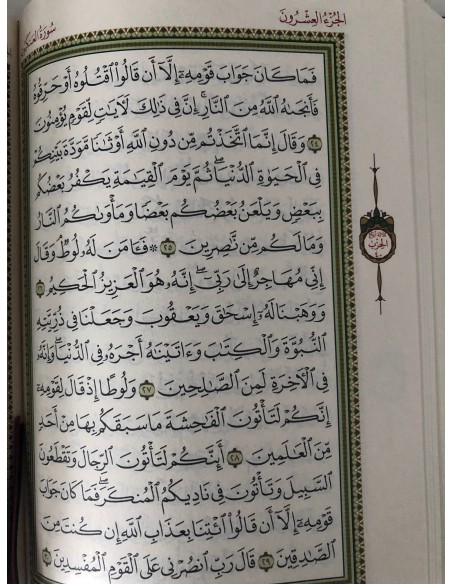 الجزء العشرون
سورة العنك
فَمَا كَانَ جَوَابَ قَوْمِهِۦٓ إِلَّآ أَن قَالُوا۟ ٱقْتُلُوهُ أَوْ حَرِّقُوهُ
فَأَنجَىٰهُ ٱللَّهُ مِنَ ٱلنَّارِ ۚ إِنَّ فِى ذَٰلِكَ لَـَٔايَـٰتٍ لِّقَوْمٍ يُؤْمِنُونَ
٢٤ وَقَالَ إِنَّمَا ٱتَّخَذْتُم مِّن دُونِ ٱللَّهِ أَوْثَـٰنًا مَّوَدَّةَ بَيْنِكُمْ
فِى ٱلْحَيَوٰةِ ٱلدُّنْيَا ۖ ثُمَّ يَوْمَ ٱلْقِيَـٰمَةِ يَكْفُرُ بَعْضُكُم
بِبَعْضٍ وَيَلْعَنُ بَعْضُكُم بَعْضًا وَمَأْوَىٰكُمُ ٱلنَّارُ
وَمَا لَكُم مِّن نَّـٰصِرِينَ ٢٥ ۞ فَـَٔامَنَ لَهُۥ لُوطٌ ۘ وَقَالَ
إِنِّى مُهَاجِرٌ إِلَىٰ رَبِّىٓ ۖ إِنَّهُۥ هُوَ ٱلْعَزِيزُ ٱلْحَكِيمُ ٢٦
وَوَهَبْنَا لَهُۥٓ إِسْحَـٰقَ وَيَعْقُوبَ وَجَعَلْنَا فِى ذُرِّيَّتِهِ
ٱلنُّبُوَّةَ وَٱلْكِتَـٰبَ وَءَاتَيْنَـٰهُ أَجْرَهُۥ فِى ٱلدُّنْيَا ۖ وَإِنَّهُۥ
فِى ٱلْـَٔاخِرَةِ لَمِنَ ٱلصَّـٰلِحِينَ ٢٧ وَلُوطًا إِذْ قَالَ لِقَوْمِهِۦٓ
إِنَّكُمْ لَتَأْتُونَ ٱلْفَـٰحِشَةَ مَا سَبَقَكُم بِهَا مِنْ أَحَدٍ
مِّنَ ٱلْعَـٰلَمِينَ ٢٨ أَئِنَّكُمْ لَتَأْتُونَ ٱلرِّجَالَ وَتَقْطَعُونَ
ٱلسَّبِيلَ وَتَأْتُونَ فِى نَادِيكُمُ ٱلْمُنكَرَ ۖ فَمَا كَانَ جَوَابَ
قَوْمِهِۦٓ إِلَّآ أَن قَالُوا۟ ٱئْتِنَا بِعَذَابِ ٱللَّهِ إِن كُنتَ مِنَ
ٱلصَّـٰدِقِينَ ٢٩ قَالَ رَبِّ ٱنصُرْنِى عَلَى ٱلْقَوْمِ ٱلْمُفْسِدِينَ ٣٠
الحزب